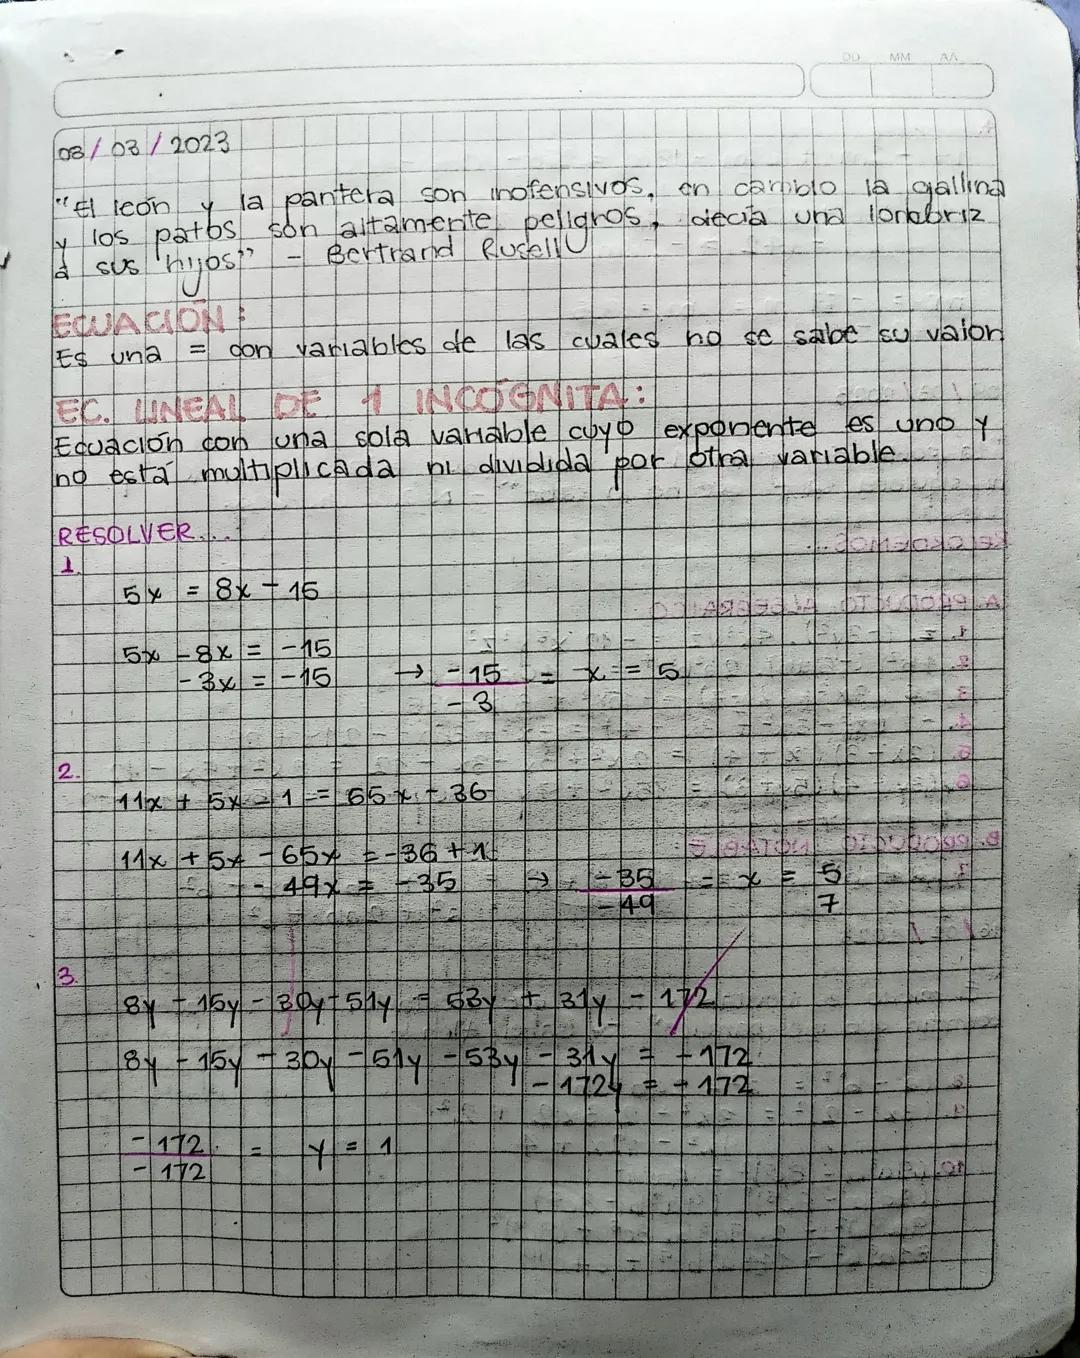 DD MM AA
08/03/2023
"El león y la pantera son inofensivos, en cambio la gallina
y los patos son altamente peligros, decía una lombriz
a sus hijos" - Bertrand Rusell
ECUACIÓN:
Es una = con variables de las cuales no se sabe su valor
EC. LINEAL DE 1 INCÓGNITA:
Ecuación con una sola variable cuyo exponente es uno y
no está multiplicada ni dividida por otra variable.
RESOLVER...
1.
5x = 8x - 15
5x - 8x = -15
-3x = -15 → -15/-3 = x = 5
2.
11x + 5x - 1 = 65x - 36
11x + 5x - 65x = -36 + 1
-49x = -35 → -35/-49 = x = 5/7
3.
8y - 15y - 30y - 51y = 53y + 31y - 172
8y - 15y - 30y - 51y - 53y - 31y = -172
-172y = -172
-172/-172 = y = 1